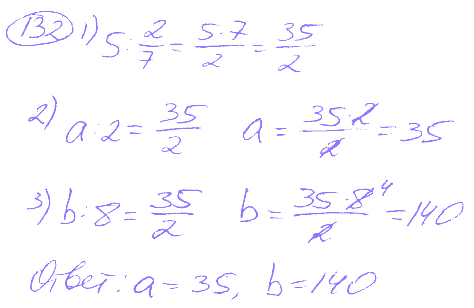 132 1) 5 : 2/7 = 5·7/2 = 35/2
2) a : 2 = 35/2 a = 35·2/2 = 35
3) b : 8 = 35/2 b = 35·8⁴/2 = 140
Ответ: a = 35, b = 140